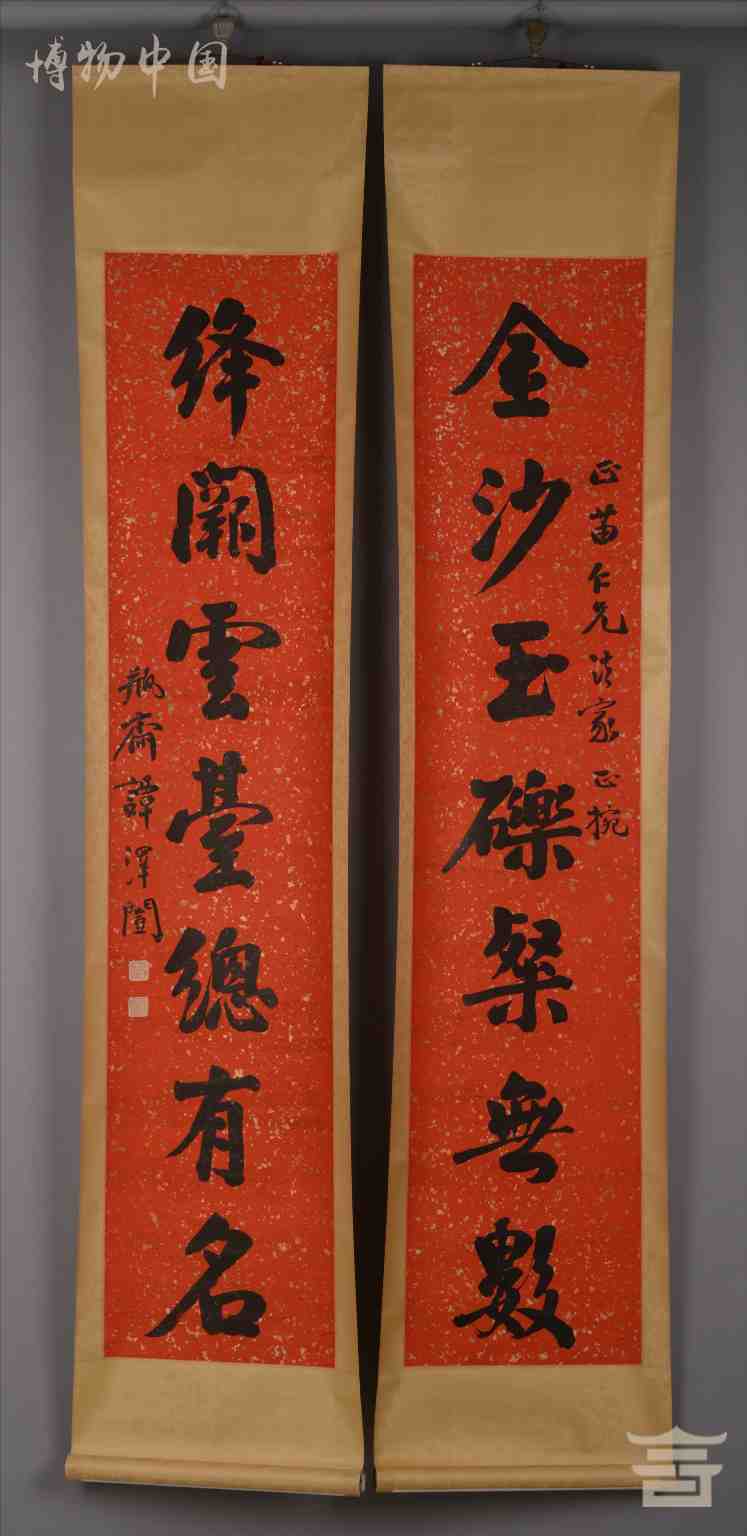 博物中国
金沙玉礫粲無數
正苗仁兄法家正捥
絳闕雲臺總有名
瓶齋譚澤闓